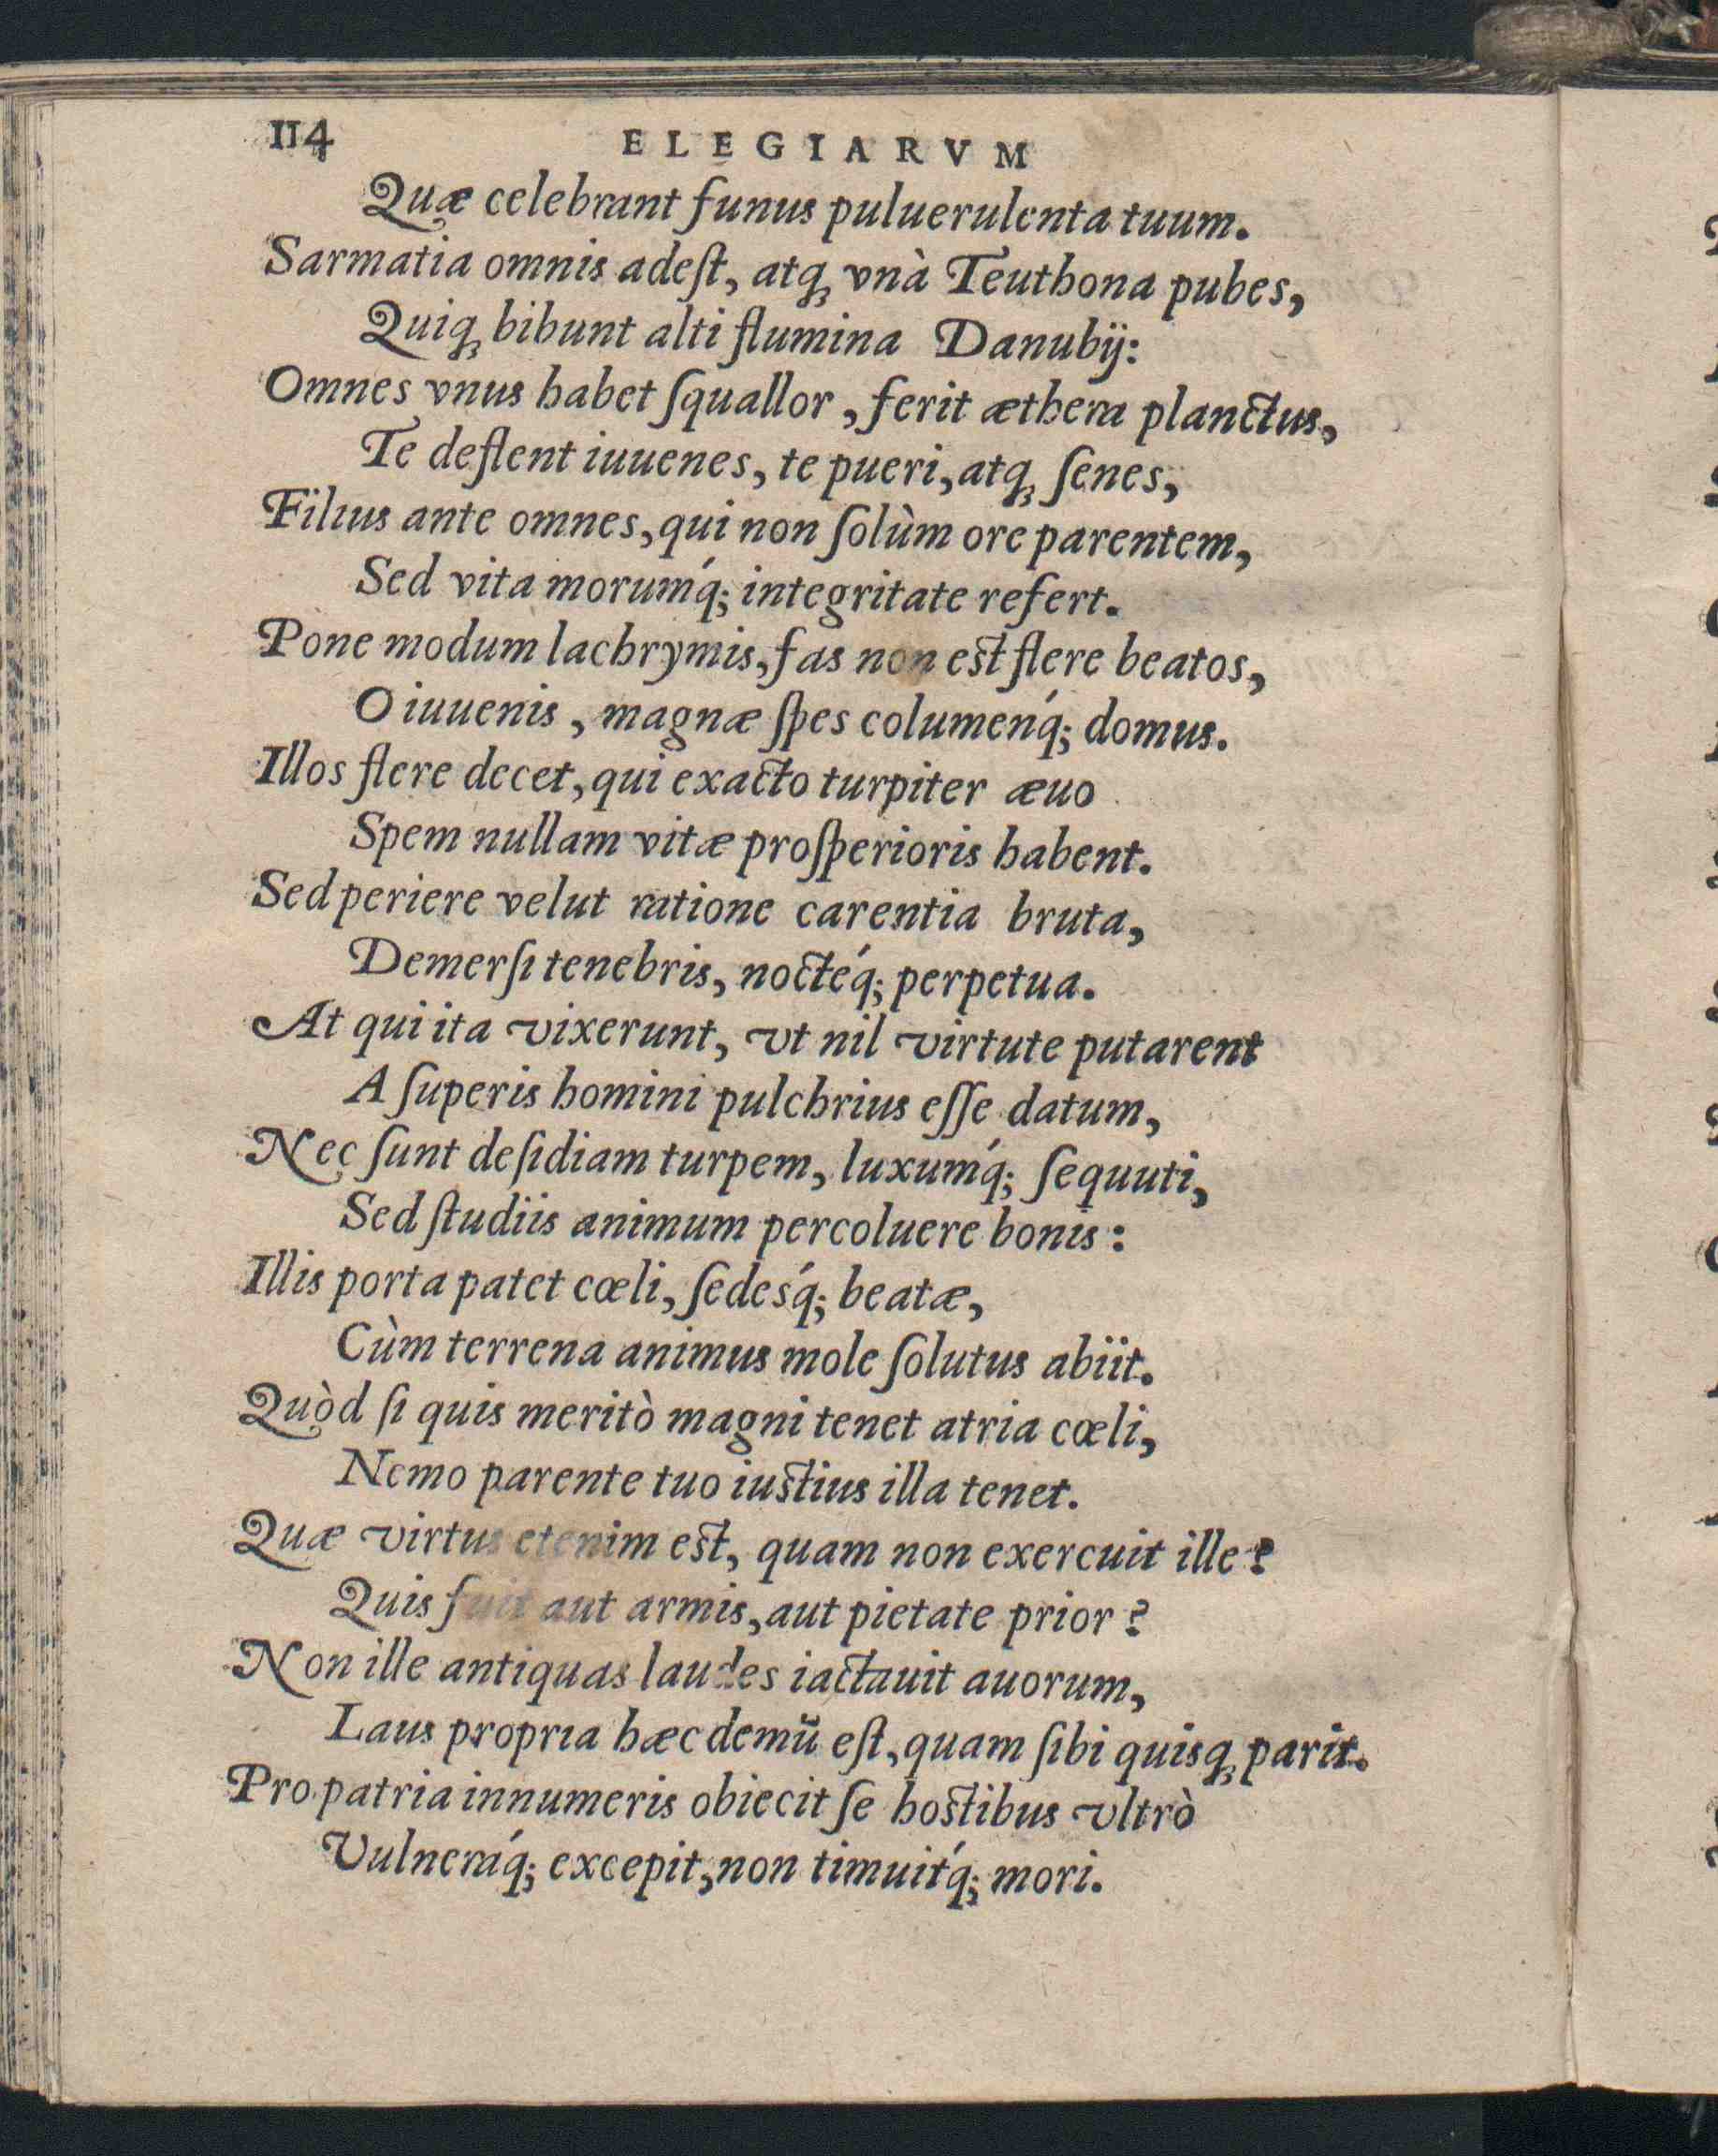 114 ELEGIARVM
Quæ celebrant funus puluerulenta tuum.
Sarmatia omnis adeſt, atq; vnà Teuthona pubes,
Quiq; bibunt alti flumina Danubij:
Omnes vnus habet ſquallor, ferit æthera planctus,
Te deflent iuuenes, te pueri, atq; ſenes,
Filius ante omnes, qui non ſolùm ore parentem,
Sed vita morumq́; integritate refert.
Pone modum lachrymis, fas non est flere beatos,
O iuuenis, magnæ ſpes columenq́; domus.
Illos flere decet, qui exacto turpiter æuo
Spem nullam vitæ proſperioris habent.
Sed periere velut ratione carentia bruta,
Demerſi tenebris, nocteq́; perpetua.
At qui ita vixerunt, vt nil virtute putarent
A ſuperis homini pulchrius eſſe datum,
Nec ſunt deſidiam turpem, luxumq́; ſequuti,
Sed ſtudiis animum percoluere bonis:
Illis porta patet cœli, ſedesq́; beatæ,
Cùm terrena animus mole ſolutus abiit.
Quòd ſi quis meritò magni tenet atria cœli,
Nemo parente tuo iustius illa tenet.
Quæ virtus etenim est, quam non exercuit ille?
Quis fuit aut armis, aut pietate prior?
Non ille antiquas laudes iactauit auorum,
Laus propria hæc demū eſt, quam ſibi quisq; parit.
Pro patria innumeris obiecit ſe hostibus vltrò
Vulneraq́; excepit, non timuitq́; mori.